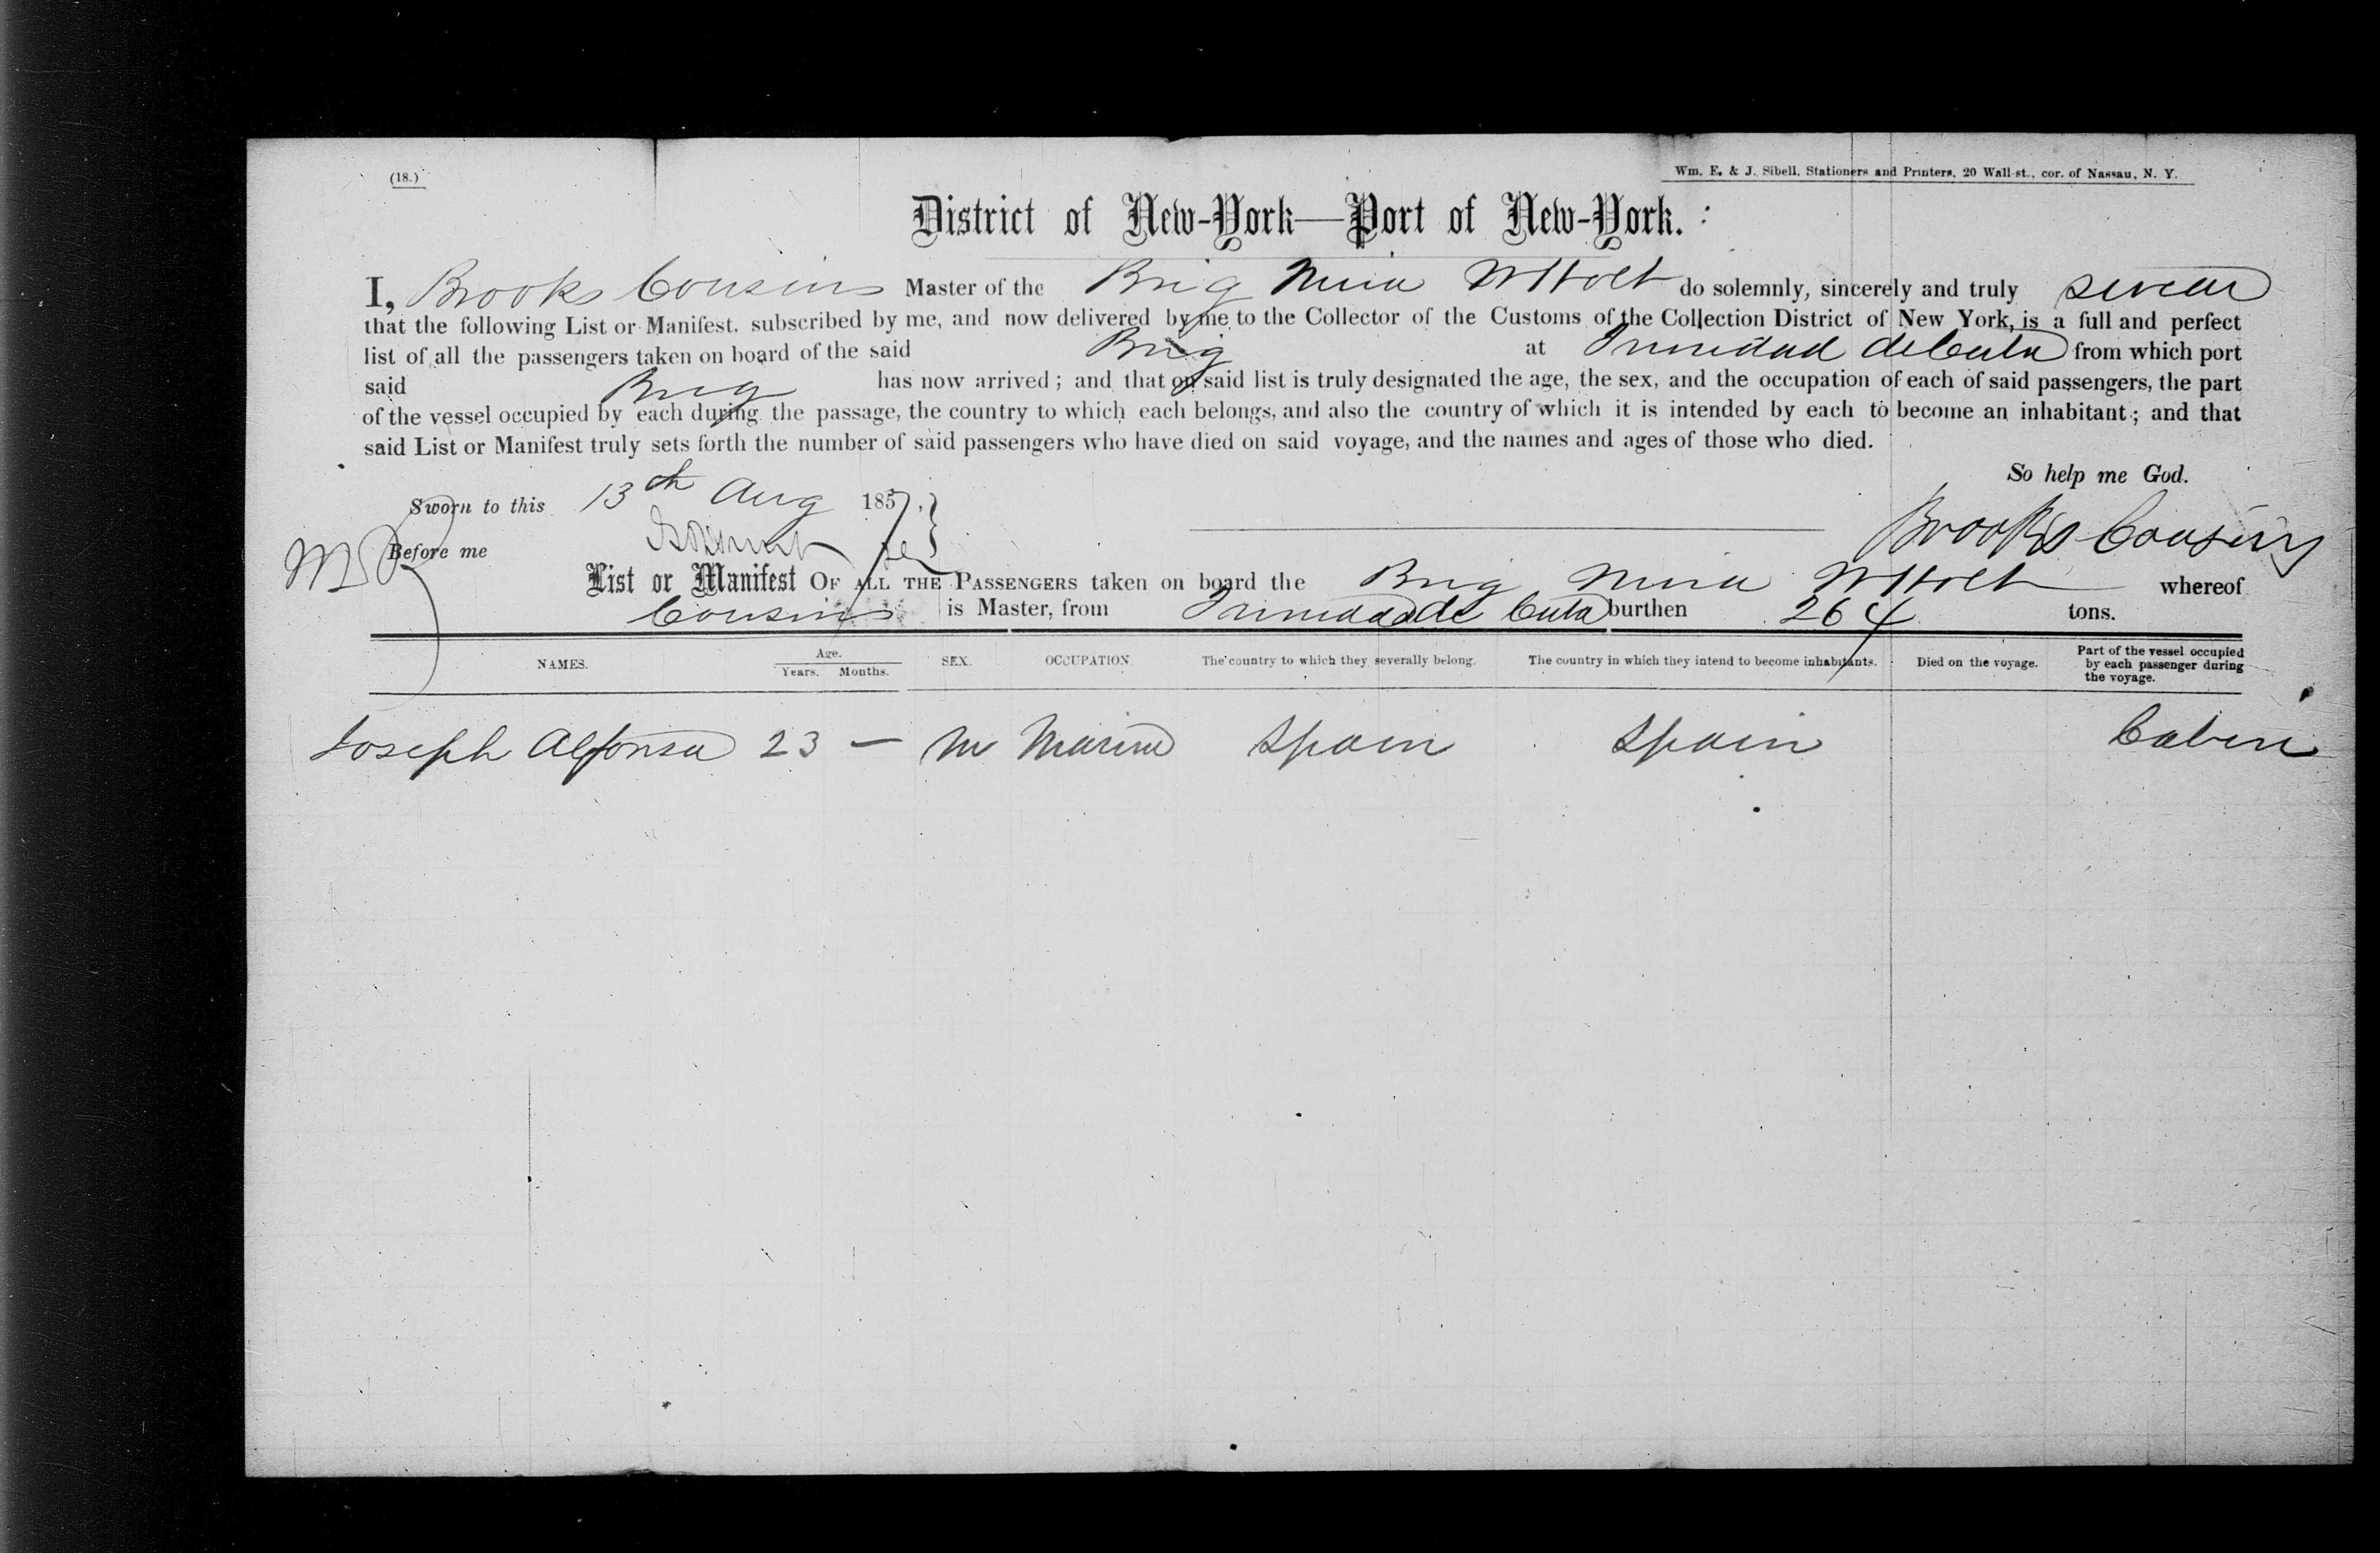 (18.)
Wm. E. & J. Sibell, Stationers and Printers, 20 Wall-st., cor. of Nassau, N. Y.
District of New-York—Port of New-York.
I, Brooks Cousins Master of the Brig W Holt do solemnly, sincerely and truly swear
that the following List or Manifest, subscribed by me, and now delivered by me to the Collector of the Customs of the Collection District of New York, is a full and perfect
list of all the passengers taken on board of the said Brig at Trinidad de Cuba from which port
said Brig has now arrived; and that on said list is truly designated the age, the sex, and the occupation of each of said passengers, the part
of the vessel occupied by each during the passage, the country to which each belongs, and also the country of which it is intended by each to become an inhabitant; and that
said List or Manifest truly sets forth the number of said passengers who have died on said voyage, and the names and ages of those who died.
So help me God.
Sworn to this 13th Aug 1857,
Brooks Cousins
Before me
List or Manifest OF ALL THE PASSENGERS taken on board the Brig W Holt whereof
Cousins is Master, from Trinidad de Cuba burthen 264 tons.
NAMES. Age. Years. Months. SEX. OCCUPATION. The country to which they severally belong. The country in which they intend to become inhabitants. Died on the voyage. Part of the vessel occupied by each passenger during the voyage.
Joseph Alfonso 23 — M Spain Spain Cabin